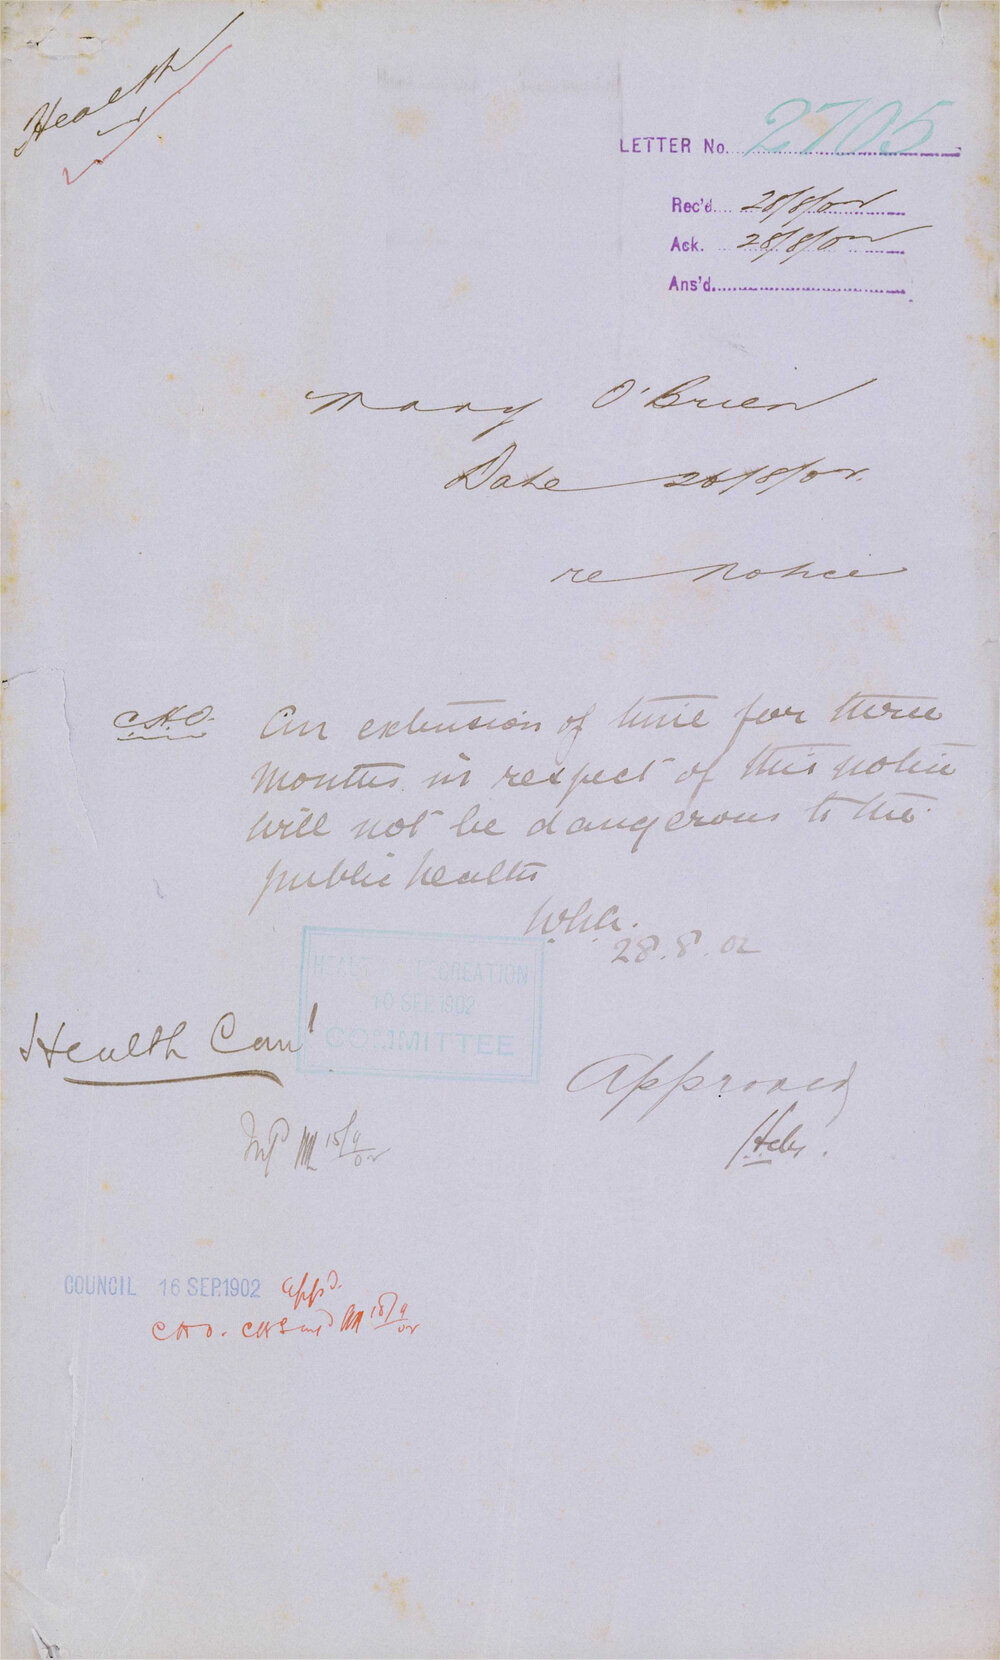 Health
LETTER No. 2705
Rec'd. 28/8/02
Ack. 28/8/02
Ans'd.
Mary O'Brien
Date 26/8/02.
re Notice
C.H.O. An extension of time for three
months in respect of this notice
will not be dangerous to the
public health
28.8.02
HEALTH RECREATION
10 SEP. 1902
COMMITTEE
Health Com
Approved
15/9/02
COUNCIL 16 SEP. 1902 appd.
CHO. 18/9/02